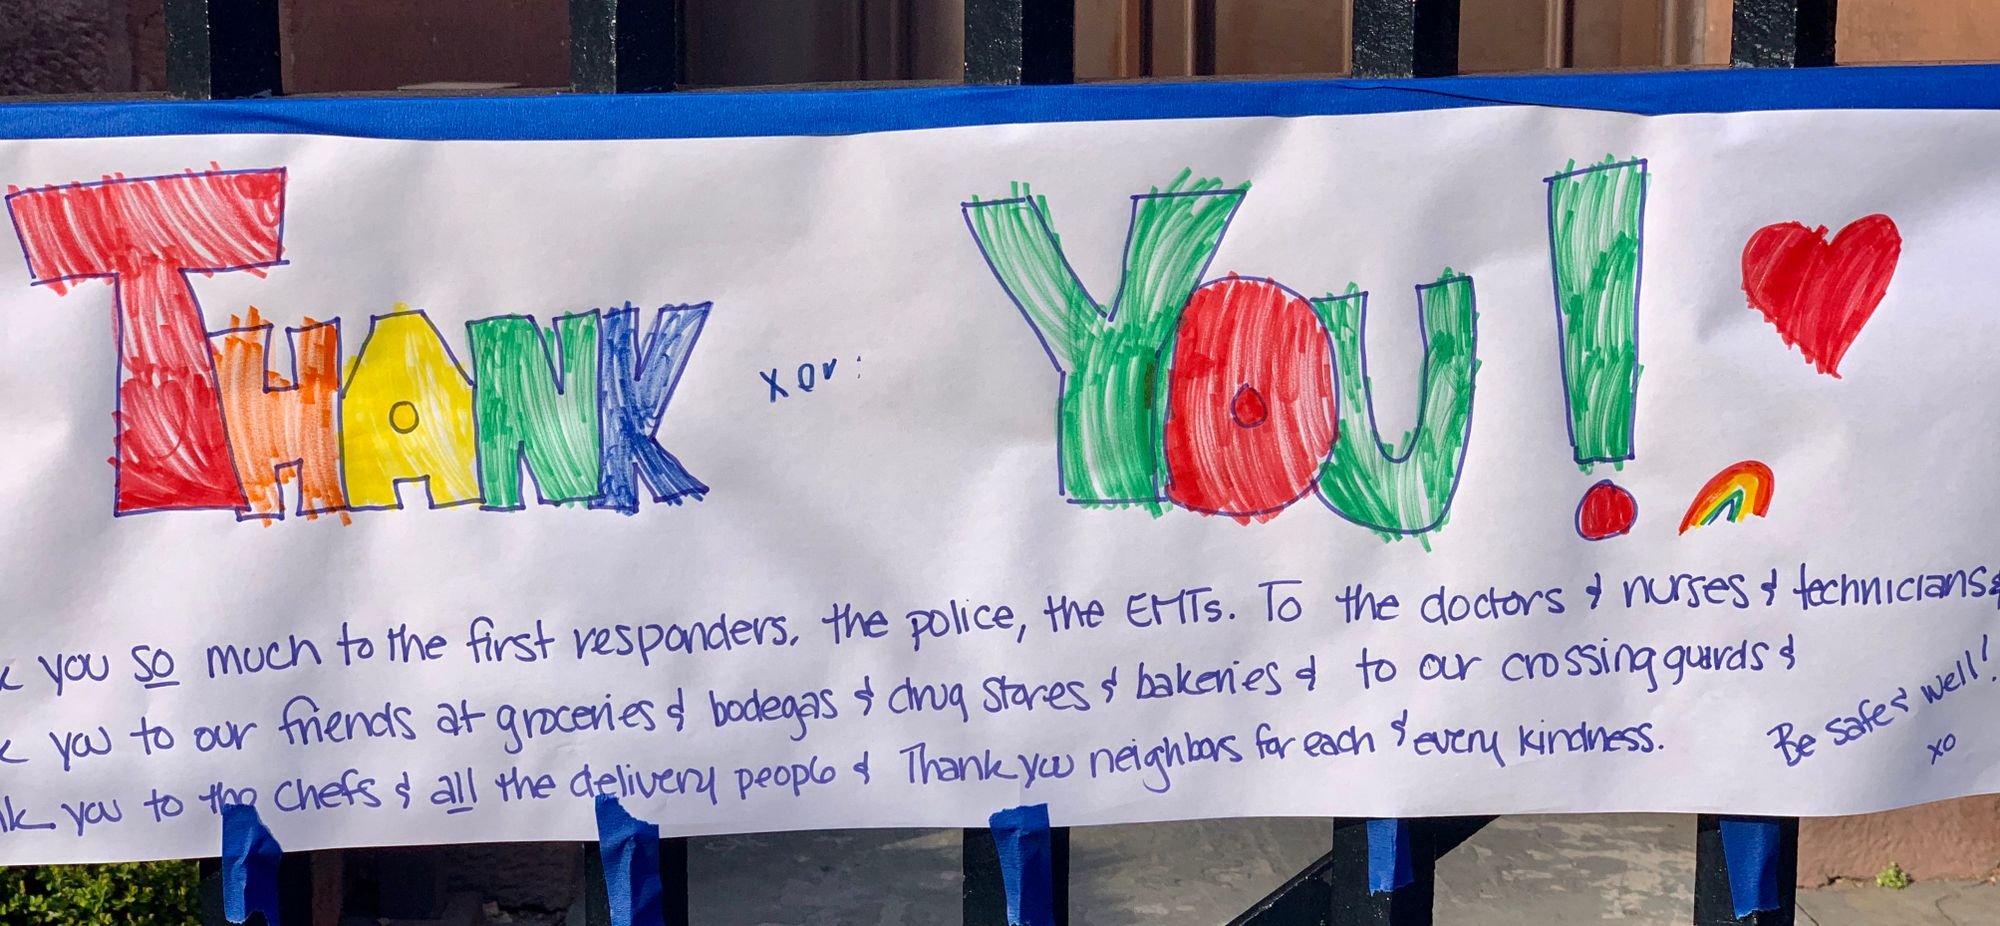 THANK xor: YOU!
k you so much to the first responders, the police, the EMTs. To the doctors & nurses & technicians &
k you to our friends at groceries & bodegas & drug stores & bakeries & to our crossing guards &
nk you to the chefs & all the delivery people & Thank you neighbors for each & every kindness.
Be safe & well!
xo